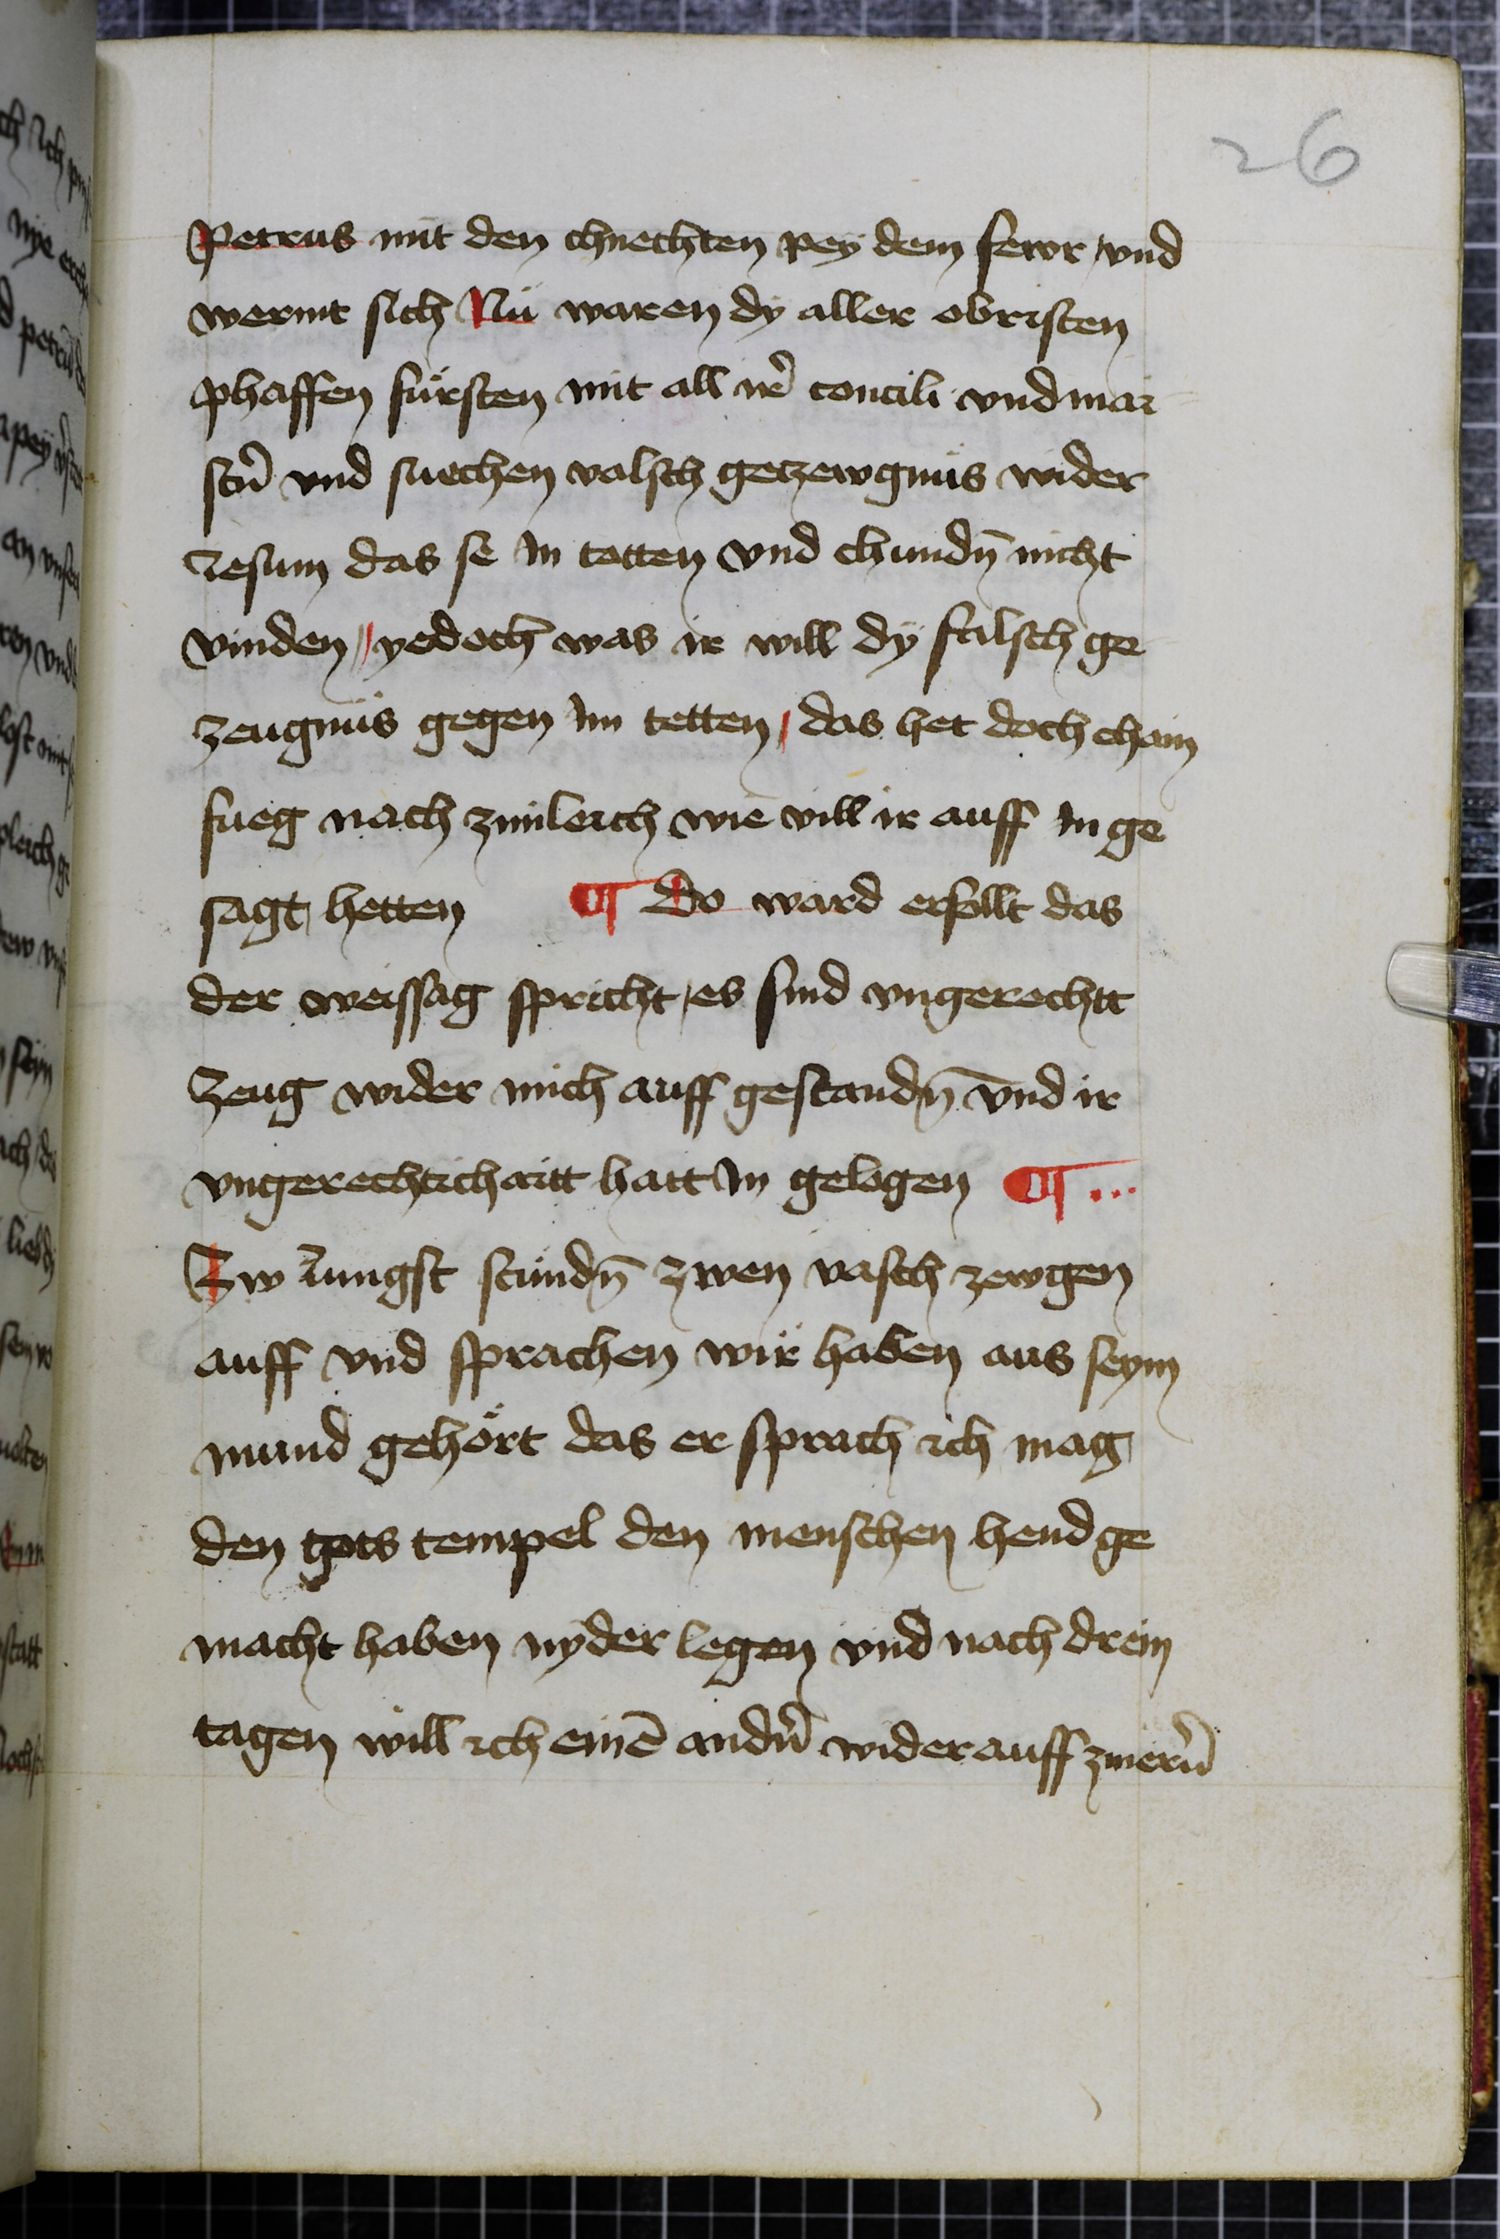 26
Petrus mit den chnechten pey dem fewr / vnd
wermt sich Nu waren dy aller obristen
phaffen fürsten mit all ir̄ concili vnd mai
stn̄ vnd suechen valsch getzewgnus wider
Jesum das se In totten vnd chundn̄ nicht
vinden // yedoch was ir vill dy falsch ge
zeugnus gegen Im tetten / das het doch chain
fueg nach zimleich wie vill ir auff In ge
sagt hetten ¶ Do ward erfollt das
der weissag spricht / es sind vngerechtt
zeug wider mich auff gestandn̄ vnd ir
vngerechtichaitt hatt In gelogen ¶ ...
Zw Jungst stundn̄ zwen vasch zewgen
auff vnd sprachen wir haben aus seym
mund gehört das er sprach ich mag
den gots tempel den menschen hend ge
macht haben nyder legen vnd nach drein
tagen will ich einē andn̄ wider auff zmern̄